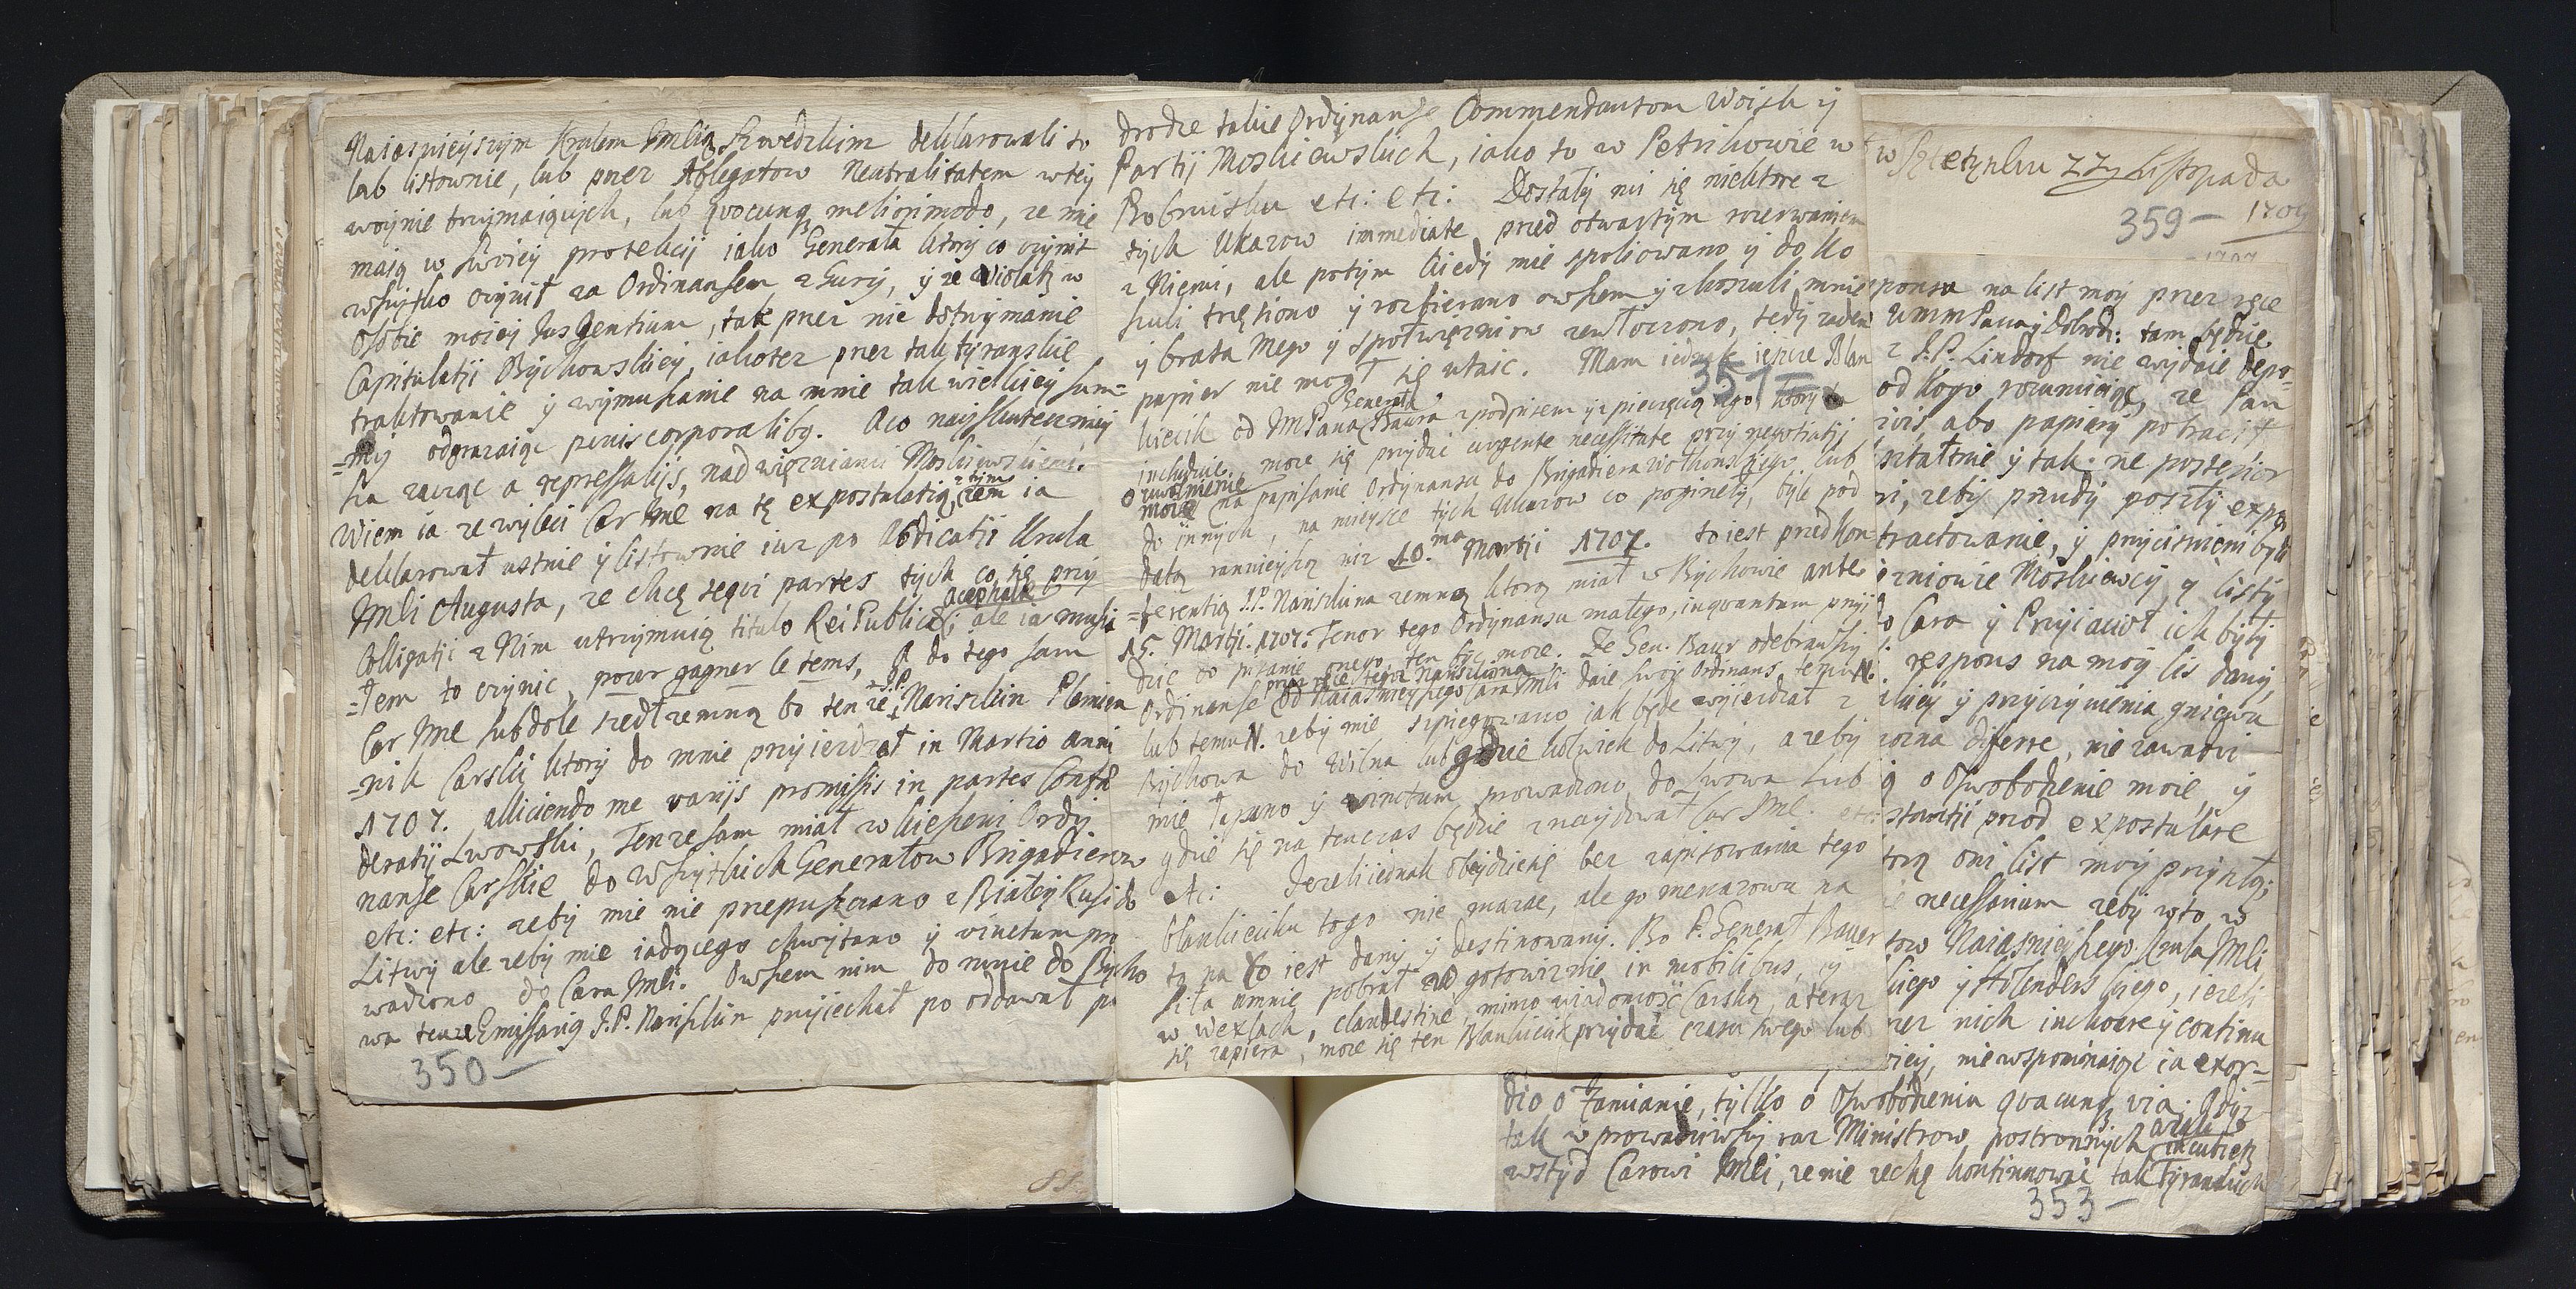 Naiasnieyszym Krulem Imlią Szwedzkim deklarowali to
lub listownie, lub przez Ablegatow Neutralitatem wtey
woynie trzymaiących, lub qvocunq meliori modo, ze mie
maią w swoiey protekcij iako Generała ktory co czynił
wszystko czynił za Ordinansem z Gury, y ze violatq w
Osobie moiey Jus Gentium, tak przez nie dotrzymanie
Capitulatij Bychowskiey, iakotez przez tak tyranskie
traktowanie y wymuszanie na mnie tak wielkiey sum=
=my odgrazaiąc penis corporalibq. Aco nayskuteczniey
ka zacząc a repressalijs, nad więzniami Moskiewskiemi.
Wiem ia ze wyleci Car Jme na tę expostulatią z tym zem ia
deklarował ustnie y listownie iuz po Abdicatij Krula
Jmli Augusta, ze chcę seqvi partes tych co się przy
Colligatij z Nim utrzymuią titulo Rei Publicae acephalae, ale ia musia
=łem to czynic, pour gagner le tems, A do tego sam
Car Jme subdole szedł zemną bo tenze J.P. Nariszkin Plemien
=nik Carski ktory do mnie przyiezdzał in Martio anni
1707. alliciendo me varijs promissis in partes Confæ
deratij Lwowski, Tenze sam miał w kieszeni Ordy
nanse Carskie do Wszytkich Generałow Brigadierow
etc: etc: zeby mie nie przepuszczano z Białey Rusi do
Litwy ale zeby mie iadącego chwytano y vinctum pro
wadzono do Cara Jmli. Owszem nim do mnie do Bycho
wa tenze Emissariq J.P. Nariszkin przyiechał po oddawał po
350 —
drodze takie Ordynanse Commendantom Woisk y
Partij Moskiewskich, iako to w Petrikowie w
Bobruisku etc: etc: Dostały mi się niektore z
tych Ukazow immediate przed otwartym zerwaniem
z Niemi, ale potym kiedy mie spoliowano y do ko
szuli trzęsiono y rozbierano owszem y z koszuli mnie
y brata mego y społwięzniow zewłoczono, tedy zaden
papier nie mogł się utaic. Mam iednak ieszcze Blan
351 —
kiecik od JmPana Generała Baura z podpisem y z pieczęcią iego, ktory tu
includuie, moze się przydac urgente necessitate przy negotiatij
o uwolnienie
moie na papisanie Ordynansu do Brigadiera Wołkonskiego lub
do innych, na mieysce tych Ukazow co poginęły, byle pod
datą rannieyszą niz 10.ma Martji 1707. to iest przed kon
=ferentią J.P. Nariszkina zemną ktorą miał w Bychowie ante
15. Martji. 1707. Tenor tego Ordynansu małego, inqvantum przyi
dzie do pisania onego, ten byc moze. Ze Gen. Baur odebrawszy
przez ręce tegoz Nariszkina
Ordinanse od Naiasnieyszego Cara Jmli daie swoy Ordinans temu N.
lub temu N. zeby mie szpiegowano iak będe wyiezdzał z
Bychowa do Wilna lub gdzie kolwiek do Litwy, a zeby
mie łapano y vinctum prowadzono do Lwowa lub
gdzie się na tenczas będzie znaydował Car Jme. etc:
etc: Jezeli iednak obeydziesię bez zapisowania tego
blankieciku tego nie mazac, ale go menazowac na
to na co iest dany y destinowany. Bo P. Generał Bauer
siła umnie pobrał w gotowiznie in mobilibus, y
w Wexlach, clandestine, mimo wiadomosc Carską, a teraz
się zapiera, moze się ten Blankiecik przydac czasu swego lub
w 22 Listopada
359 — 1709
1707
ponsa na list moy przez ręce
UmmPanay Dobrodz: tam będzie
z J.P. Lindorf nie wydaie depo=
od kogo rozumieiąc, ze Pan
abo papiery potracił
y tak ne posterior
zeby prudy poszły expo
tractowanie, y przycisnieni byli
ęzniowie Moskiewcy, y listy
o Cara y Przyiacioł ich były
respons na moy lis dany,
y przyczynienia gniewu
ozna diferre, nie zawadzi
o Oswobodzenie moie, y
stantij przod expostulare
torą oni list moy przyniosą;
necessarium zeby w to, w
tow Naiasnieyszego Krula Jmli
kiego y Hollenderskiego, iezeli
rzez nich inchoare y continu
niewspominaiąc ia exor=
dio o zamianie, tylko o Oswobodzeniu qvacunq via. Gdyz
tak w prowadziwszy raz Ministrow postronnych incutietq
wstyd Carowi Jmli, ze nie zechę kontinuowac tak Tyranskich
353 —